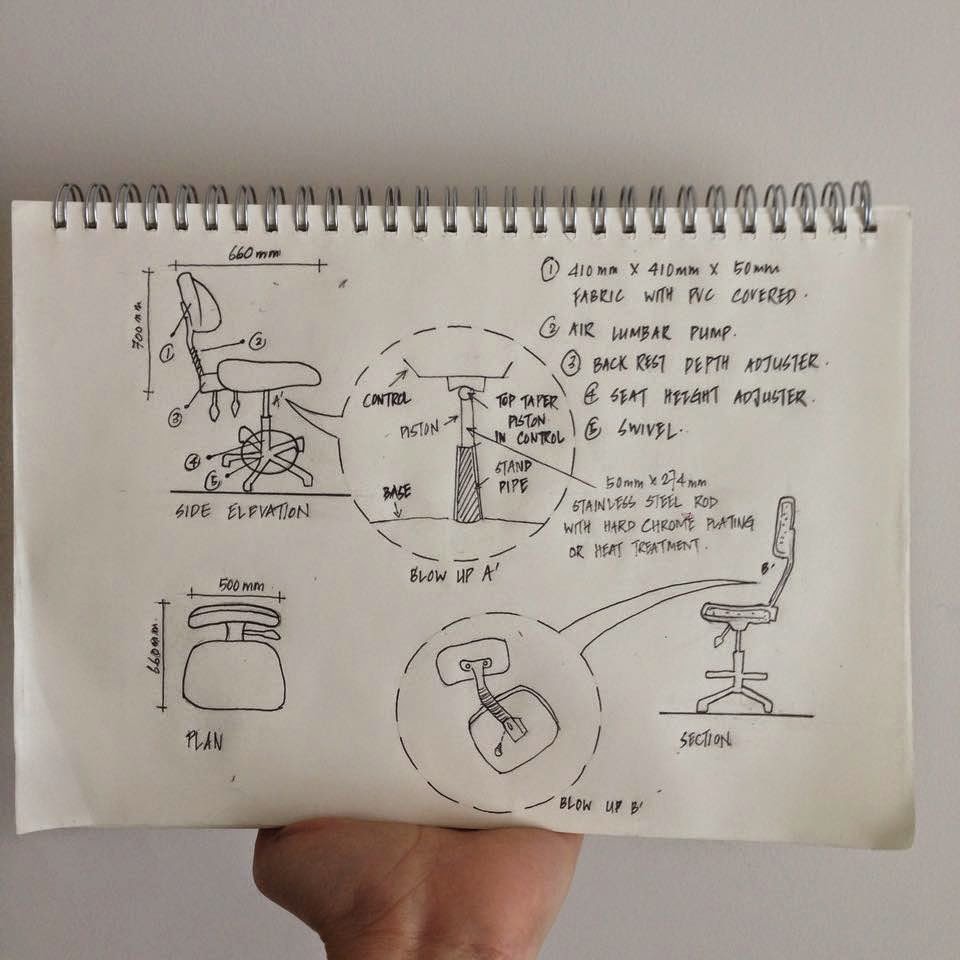 660mm
700mm
① 410mm X 410mm X 50mm
FABRIC WITH PVC COVERED.
② AIR LUMBAR PUMP.
③ BACK REST DEPTH ADJUSTER.
④ SEAT HEIGHT ADJUSTER.
⑤ SWIVEL.
①
②
③
④
⑤
A'
SIDE ELEVATION
CONTROL
PISTON
TOP TAPER
PISTON
IN CONTROL
STAND
PIPE
BASE
BLOW UP A'
50mm X 274mm
STAINLESS STEEL ROD
WITH HARD CHROME PLATING
OR HEAT TREATMENT.
500mm
660mm
PLAN
B'
BLOW UP B'
SECTION